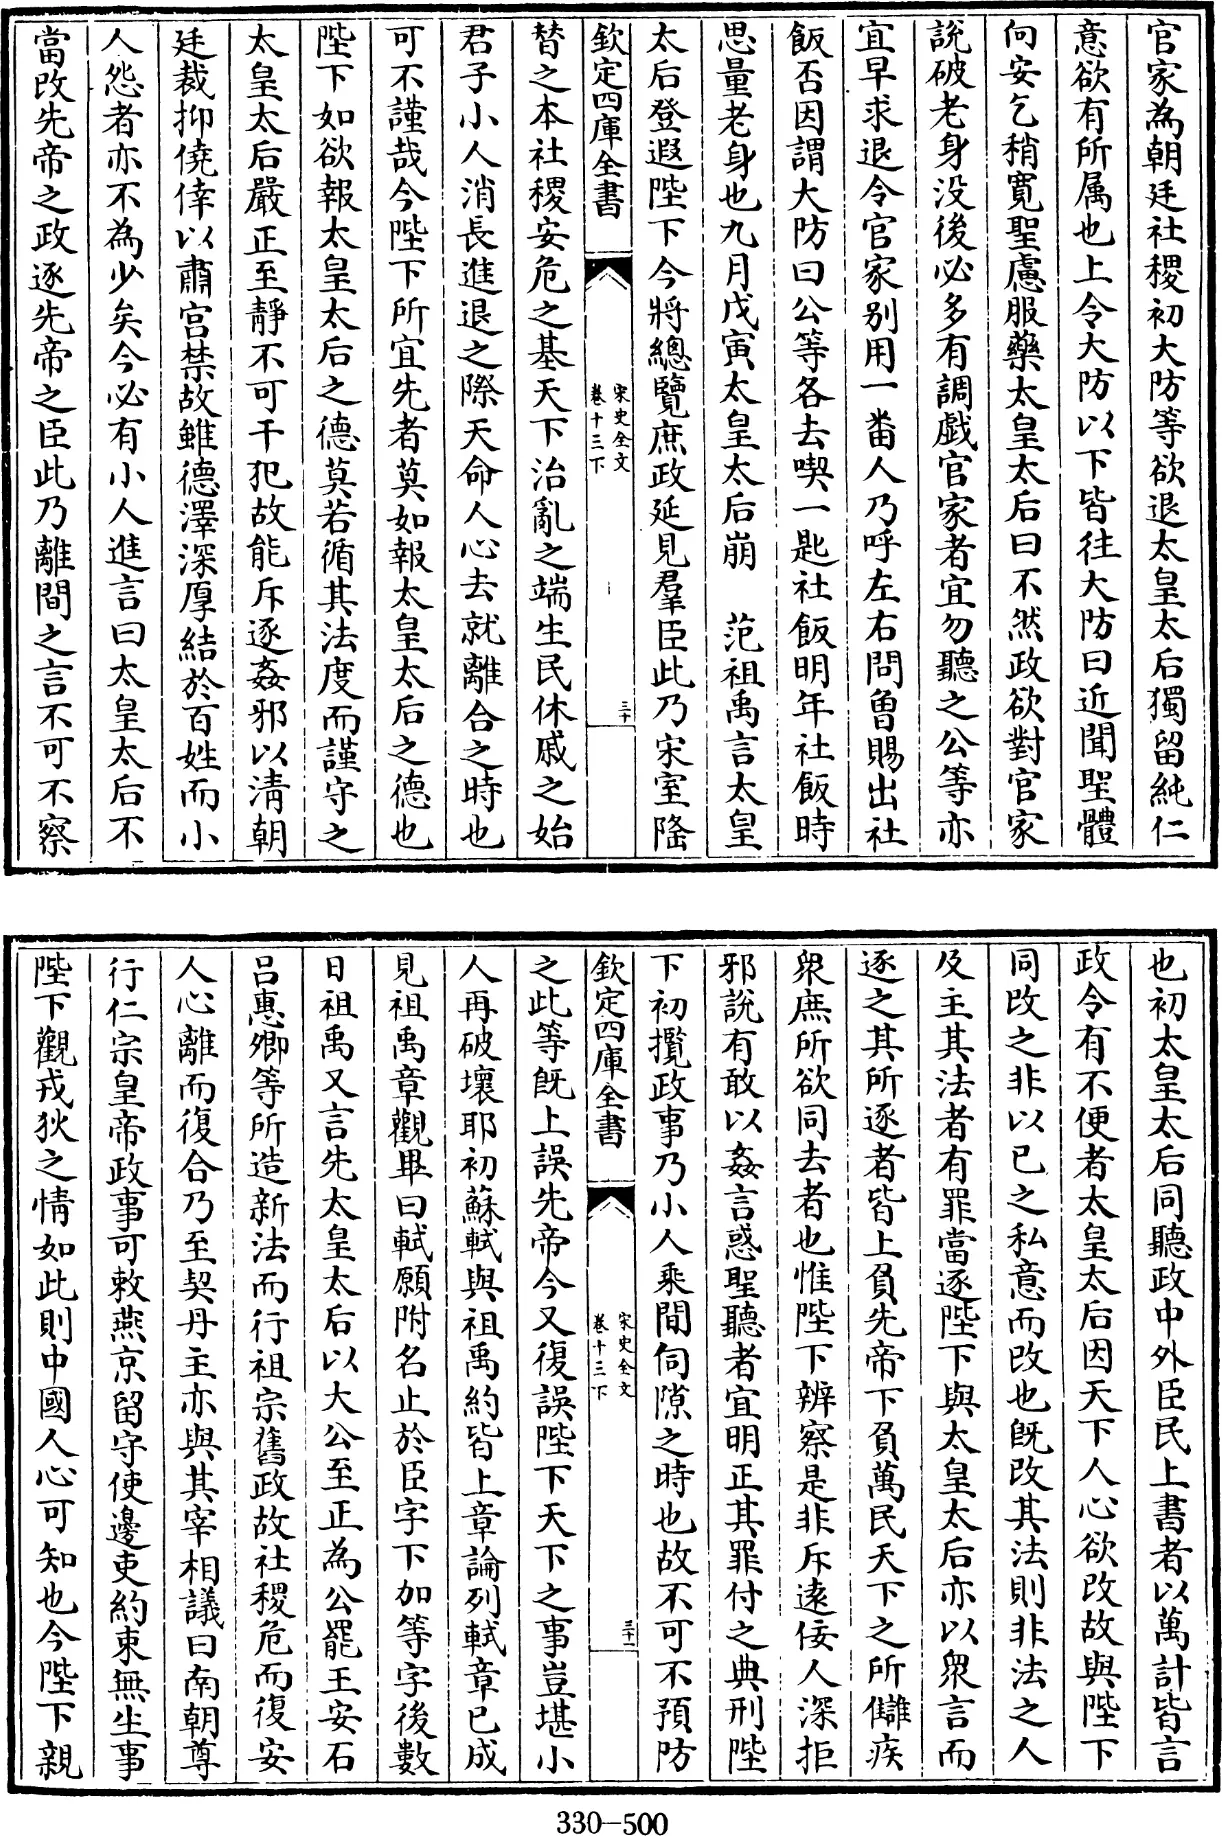 官家為朝廷社稷初大防等欲退太皇太后獨留純仁
意欲有所属也上令大防以下皆往大防曰近聞聖體
向安乞稍寛聖慮服藥太皇太后曰不然政欲對官家
說破老身没後必多有調戯官家者宜勿聽之公等亦
宜早求退令官家别用一畨人乃呼左右問曽賜出社
飯否因謂大防曰公等各去喫一匙社飯明年社飯時
思量老身也九月戊寅太皇太后崩　范祖禹言太皇
太后登遐陛下今將總覽庶政延見羣臣此乃宋室隆
欽定四庫全書
宋史全文
卷十三下
三十
替之本社稷安危之基天下治亂之端生民休戚之始
君子小人消長進退之際天命人心去就離合之時也
可不謹哉今陛下所宜先者莫如報太皇太后之德也
陛下如欲報太皇太后之德莫若循其法度而謹守之
太皇太后嚴正至靜不可干犯故能斥逐姦邪以清朝
廷裁抑僥倖以肅宫禁故雖德澤深厚結於百姓而小
人怨者亦不為少矣今必有小人進言曰太皇太后不
當改先帝之政逐先帝之臣此乃離間之言不可不察
也初太皇太后同聽政中外臣民上書者以萬計皆言
政令有不便者太皇太后因天下人心欲改故與陛下
同改之非以已之私意而改也既改其法則非法之人
及主其法者有罪當逐陛下與太皇太后亦以衆言而
逐之其所逐者皆上負先帝下負萬民天下之所讎疾
衆庶所欲同去者也惟陛下辨察是非斥逺佞人深拒
邪說有敢以姦言惑聖聽者宜明正其罪付之典刑陛
下初攬政事乃小人乘間伺隙之時也故不可不預防
欽定四庫全書
宋史全文
卷十三下
三十一
之此等既上誤先帝今又復誤陛下天下之事豈堪小
人再破壞耶初蘇軾與祖禹約皆上章論列軾章已成
見祖禹章觀畢曰軾願附名止於臣字下加等字後數
日祖禹又言先太皇太后以大公至正為公罷王安石
吕惠卿等所造新法而行祖宗舊政故社稷危而復安
人心離而復合乃至契丹主亦與其宰相議曰南朝尊
行仁宗皇帝政事可敕燕京留守使邊吏約束無生事
陛下觀戎狄之情如此則中國人心可知也今陛下親
330-500